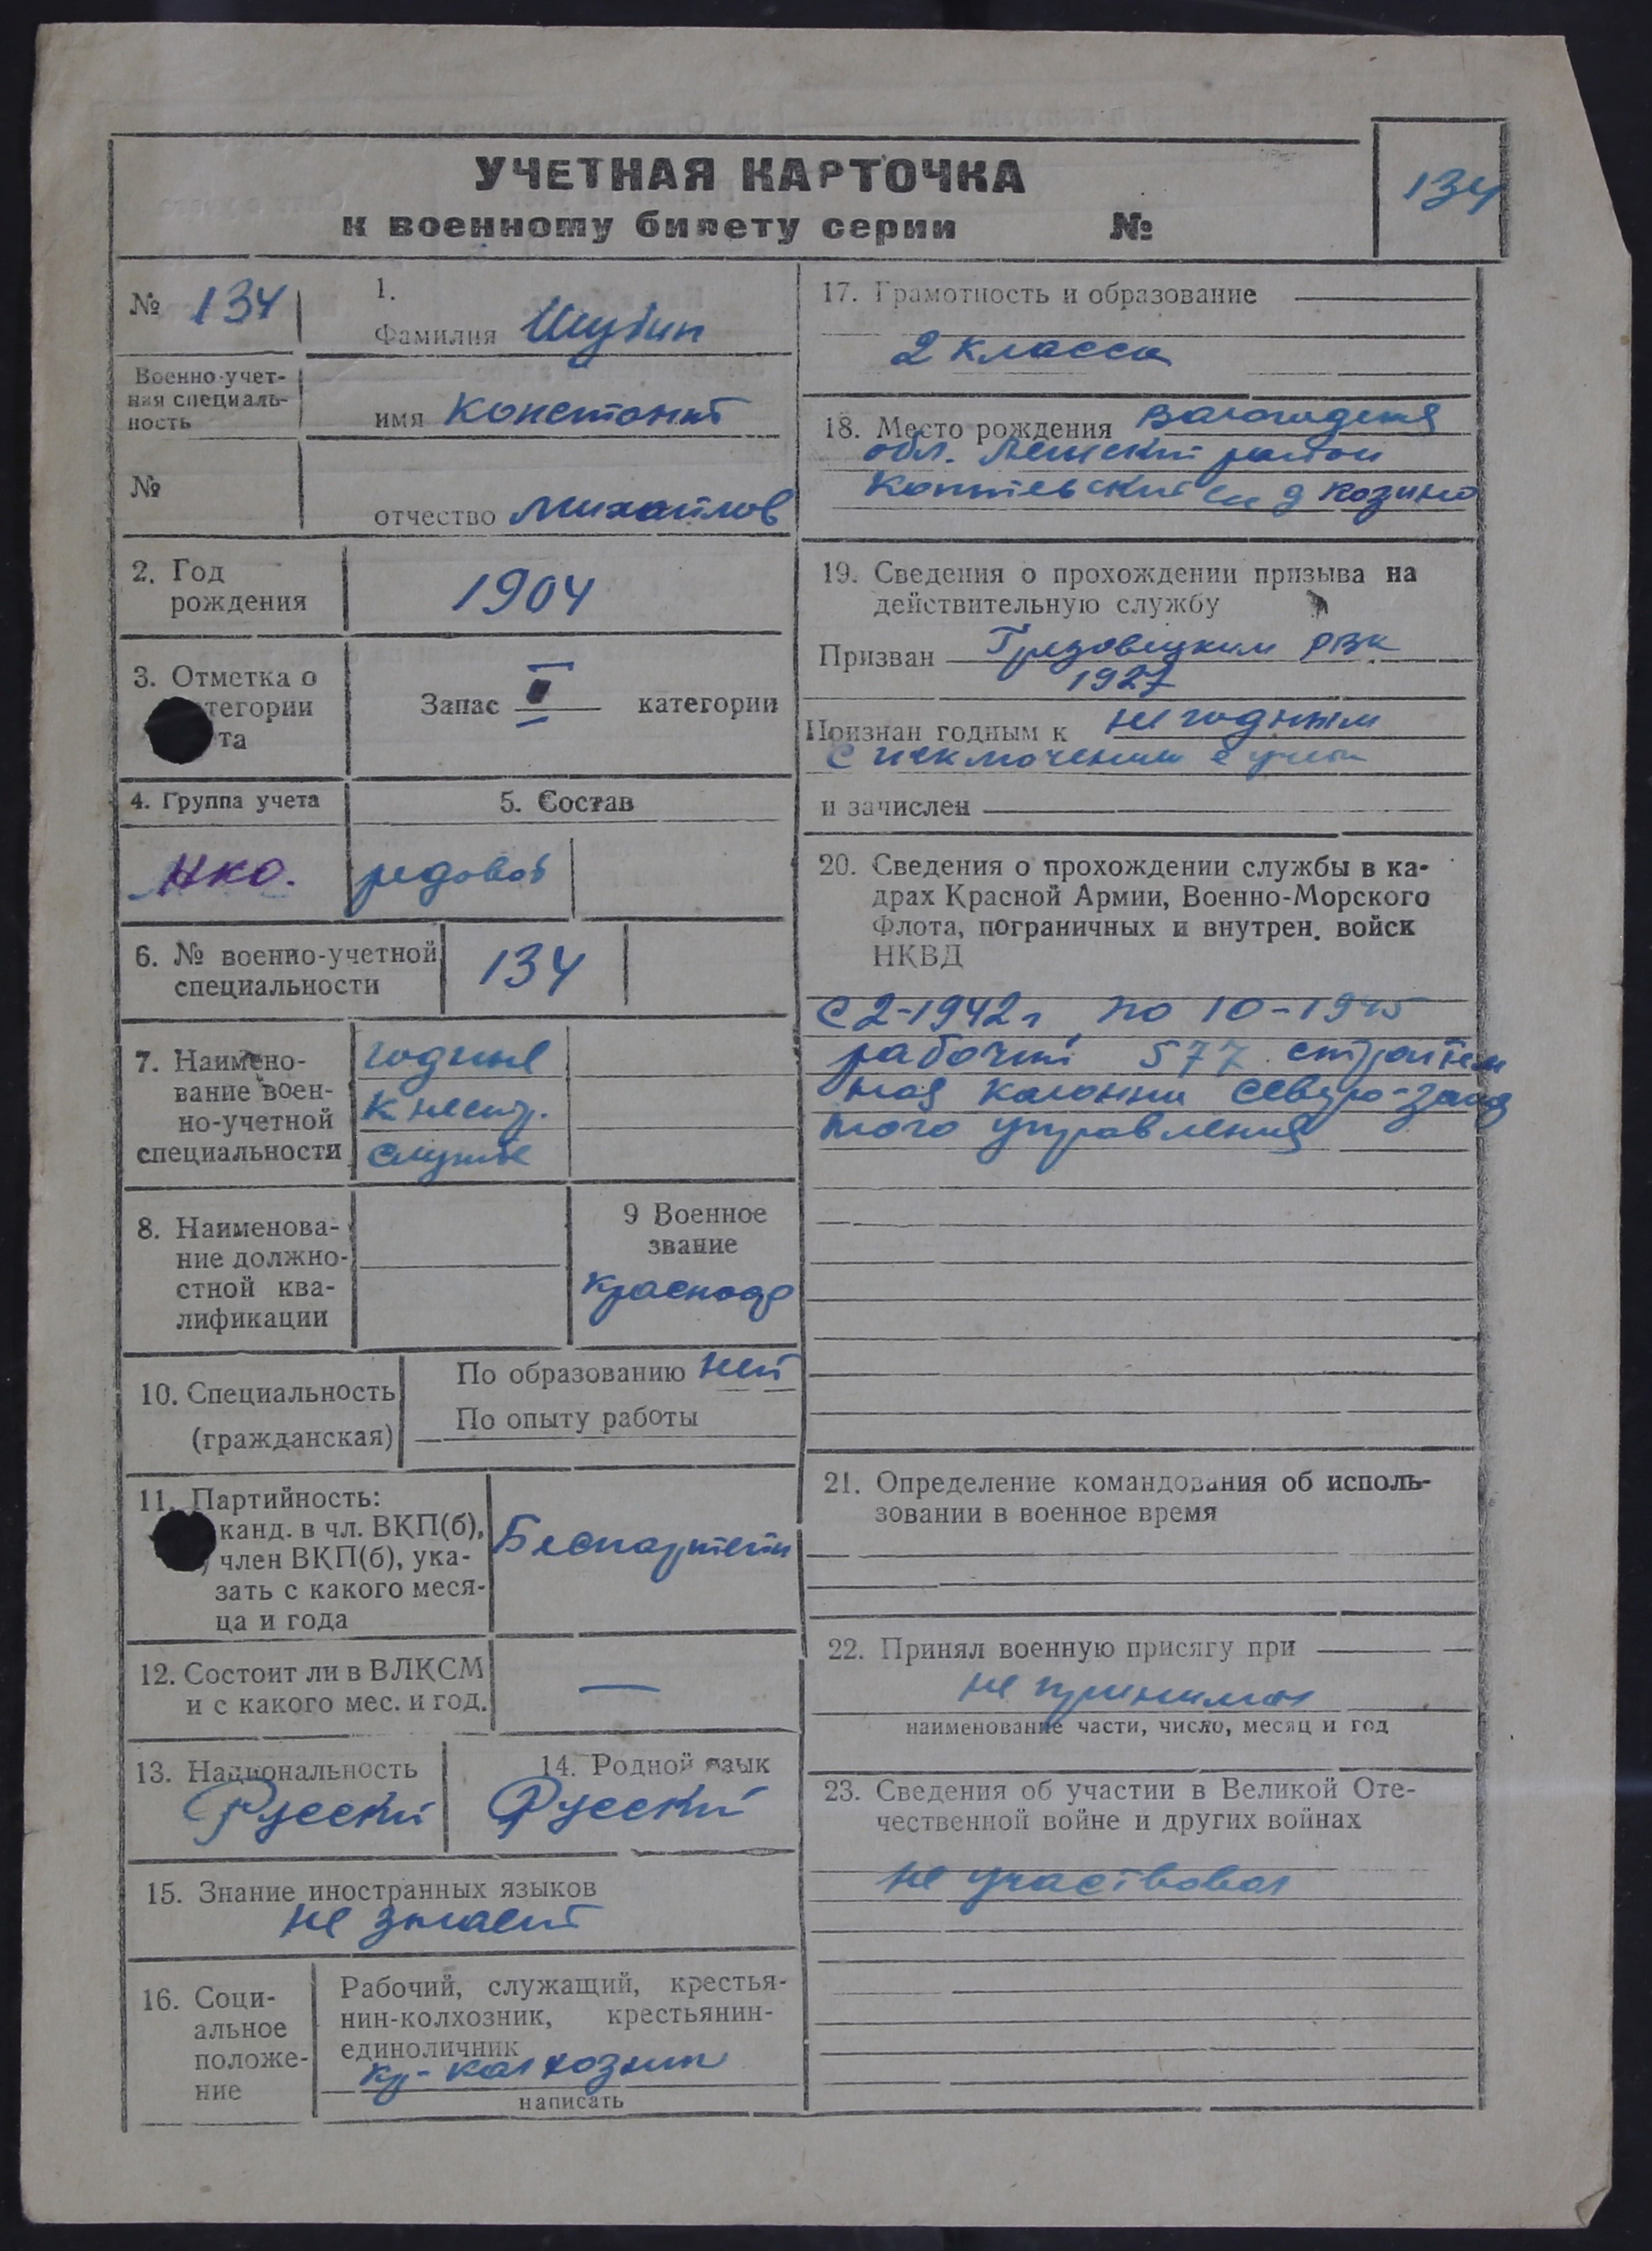 УЧЕТНАЯ КАРТОЧКА
к военному билету серии №
134
№ 134
1.
Фамилия Шубин
Военно-учет-
ная специаль-
ность
имя Констонит
№
отчество Михайлов
2. Год
рождения
1904
3. Отметка о
тегории
та
Запас II категории
4. Группа учета
5. Состав
НКО.
редовой
6. № военно-учетной
специальности
134
7. Наимено-
вание воен-
но-учетной
специальности
годные
к нестр.
службе
8. Наименова-
ние должно-
стной ква-
лификации
9 Военное
звание
красноар
10. Специальность
(гражданская)
По образованию нет
По опыту работы
11. Партийность:
канд. в чл. ВКП(б),
член ВКП(б), ука-
зать с какого меся-
ца и года
Беспартейн
12. Состоит ли в ВЛКСМ
и с какого мес. и год.
—
13. Национальность
Русский
14. Родной язык
Русский
15. Знание иностранных языков
не знает
16. Соци-
альное
положе-
ние
Рабочий, служащий, крестья-
нин-колхозник, крестьянин-
единоличник
кр-колхозник
написать
17. Грамотность и образование
2 класса
18. Место рождения Вологодская
обл. район
д Козино
19. Сведения о прохождении призыва на
действительную службу
Призван Грязовецким РВК
1927
Признан годным к не годным
с исключением с учета
и зачислен
20. Сведения о прохождении службы в ка-
драх Красной Армии, Военно-Морского
Флота, пограничных и внутрен. войск
НКВД
с 2-1942г по 10-1945
рабочий 577 строител
ная колонна северо-запад
ного управления
21. Определение командования об исполь-
зовании в военное время
22. Принял военную присягу при
не принимал
наименование части, число, месяц и год
23. Сведения об участии в Великой Оте-
чественной войне и других войнах
не участвовал